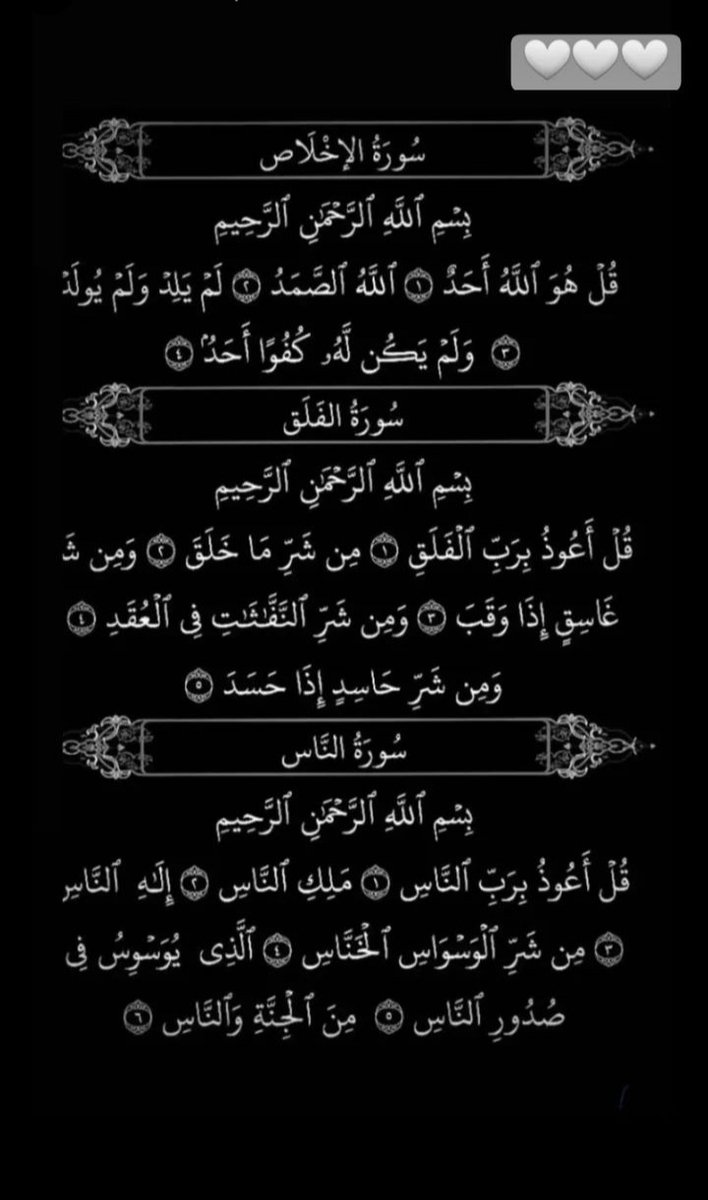 🤍🤍🤍
سُورَةُ الإِخْلَاص
بِسْمِ ٱللَّهِ ٱلرَّحْمَٰنِ ٱلرَّحِيمِ
قُلْ هُوَ ٱللَّهُ أَحَدٌ ١ ٱللَّهُ ٱلصَّمَدُ ٢ لَمْ يَلِدْ وَلَمْ يُولَدْ
٣ وَلَمْ يَكُن لَّهُۥ كُفُوًا أَحَدٌۢ ٤
سُورَةُ الفَلَق
بِسْمِ ٱللَّهِ ٱلرَّحْمَٰنِ ٱلرَّحِيمِ
قُلْ أَعُوذُ بِرَبِّ ٱلْفَلَقِ ١ مِن شَرِّ مَا خَلَقَ ٢ وَمِن شَ
غَاسِقٍ إِذَا وَقَبَ ٣ وَمِن شَرِّ ٱلنَّفَّٰثَٰتِ فِى ٱلْعُقَدِ ٤
وَمِن شَرِّ حَاسِدٍ إِذَا حَسَدَ ٥
سُورَةُ النَّاس
بِسْمِ ٱللَّهِ ٱلرَّحْمَٰنِ ٱلرَّحِيمِ
قُلْ أَعُوذُ بِرَبِّ ٱلنَّاسِ ١ مَلِكِ ٱلنَّاسِ ٢ إِلَٰهِ ٱلنَّاسِ
٣ مِن شَرِّ ٱلْوَسْوَاسِ ٱلْخَنَّاسِ ٤ ٱلَّذِى يُوَسْوِسُ فِى
صُدُورِ ٱلنَّاسِ ٥ مِنَ ٱلْجِنَّةِ وَٱلنَّاسِ ٦